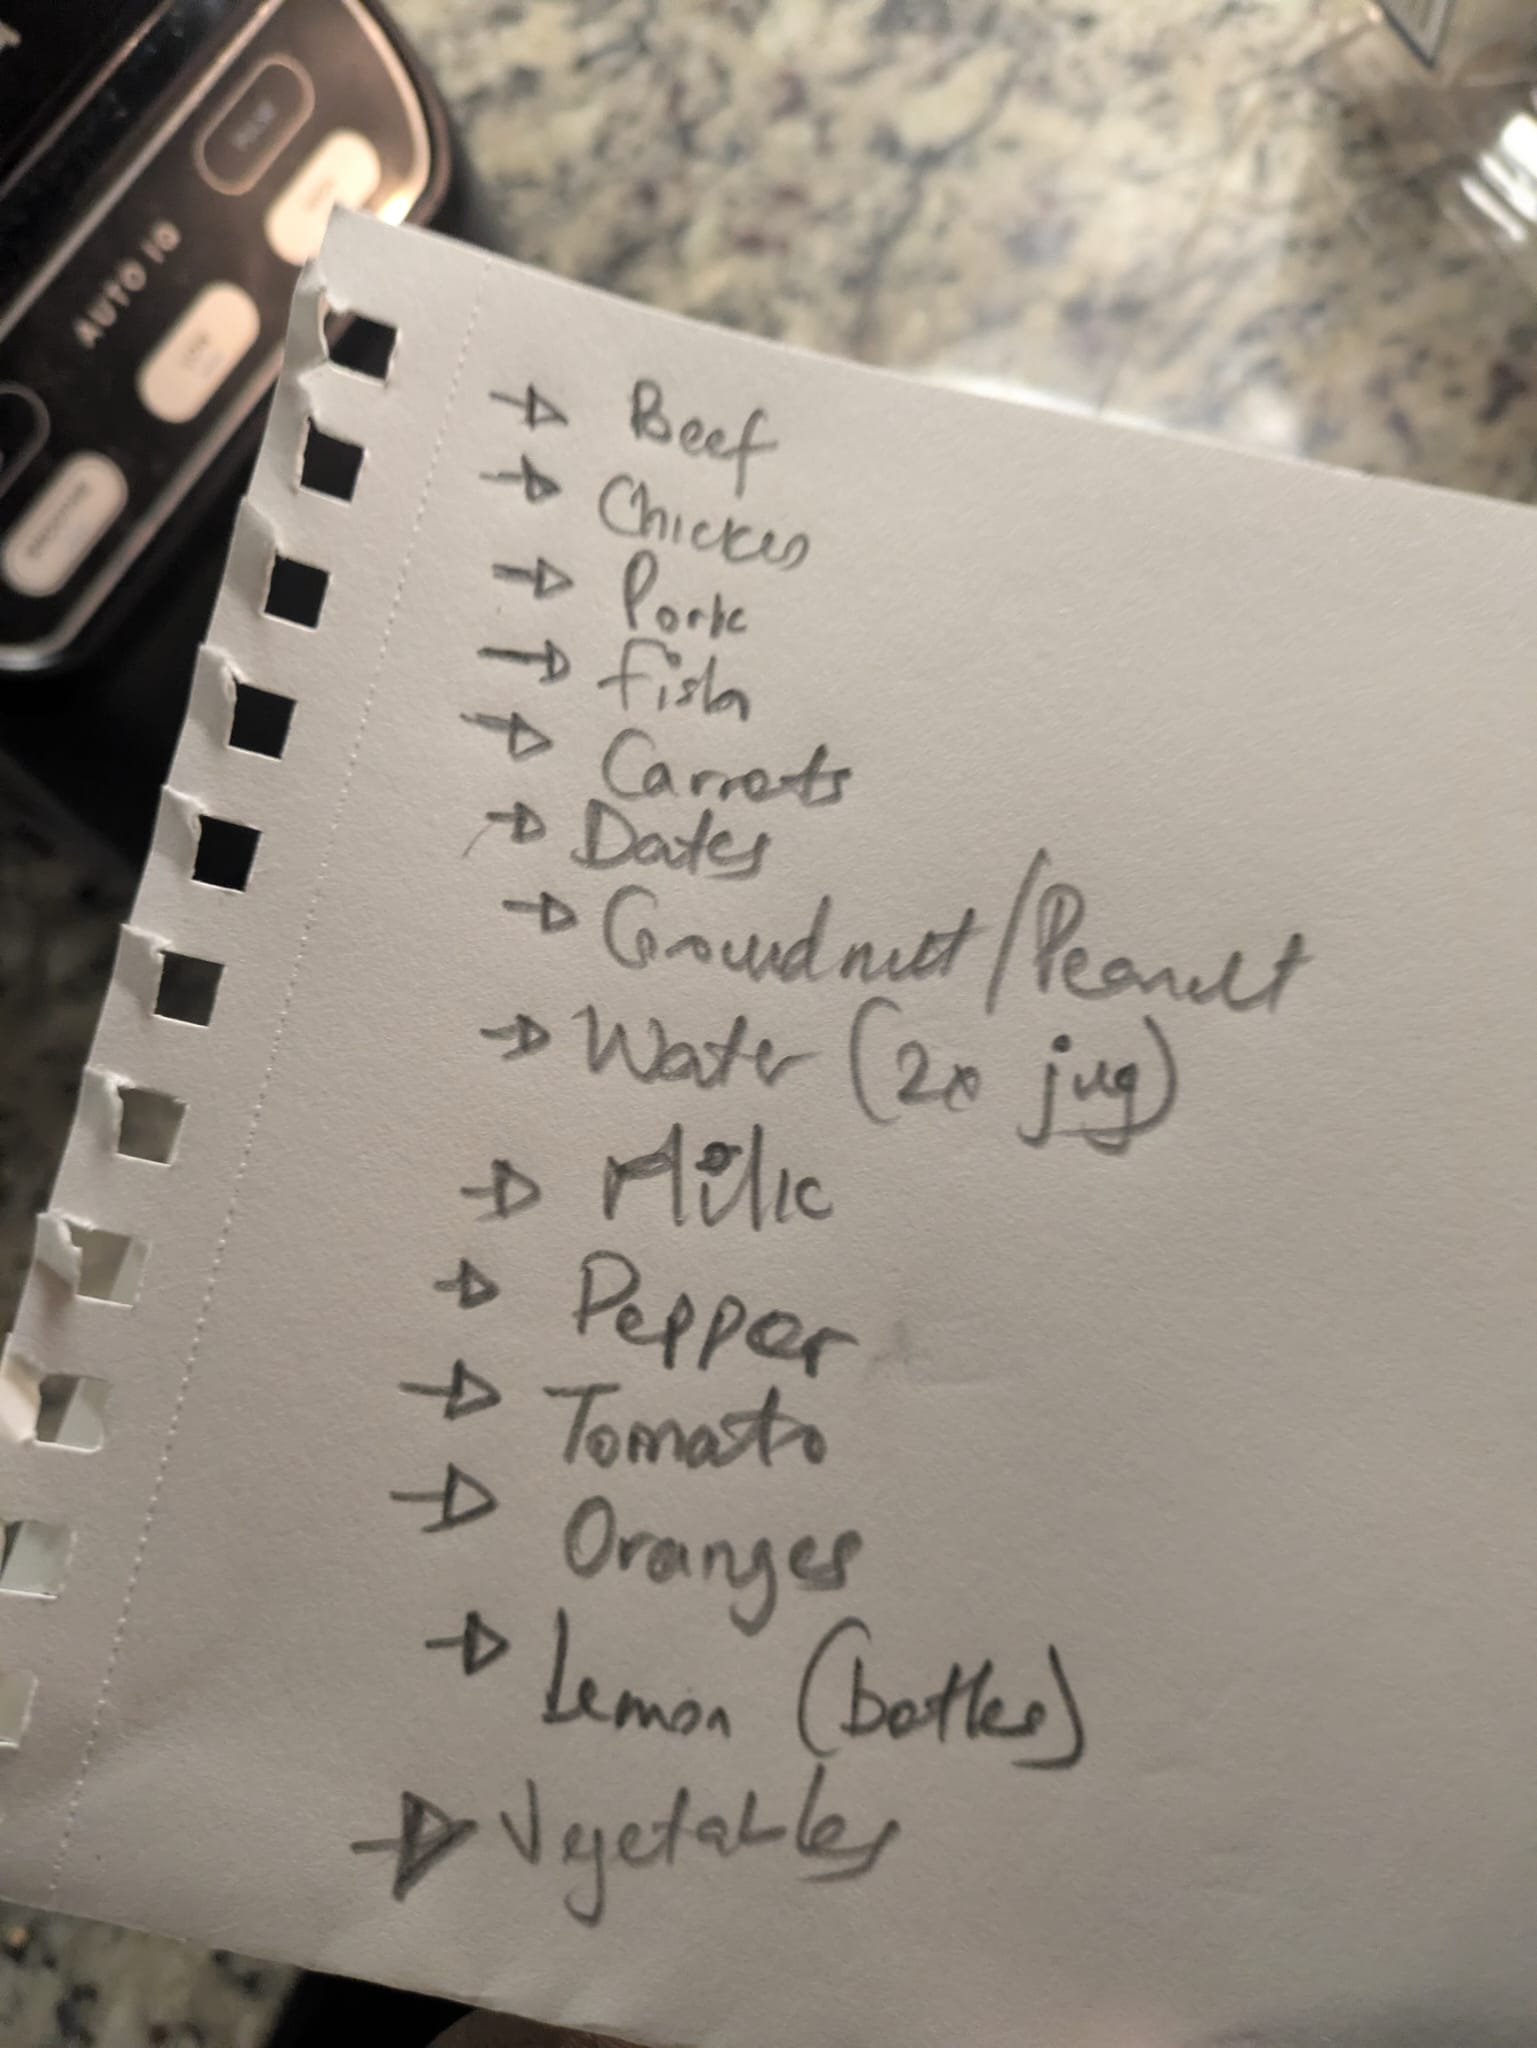 AUTO IQ
→ Beef
→ Chicken
→ Pork
→ Fish
→ Carrots
→ Dates
→ Groundnut/Peanut
→ Water (2x jug)
→ Milk
→ Pepper
→ Tomato
→ Oranges
→ Lemon (bottles)
→ Vegetables